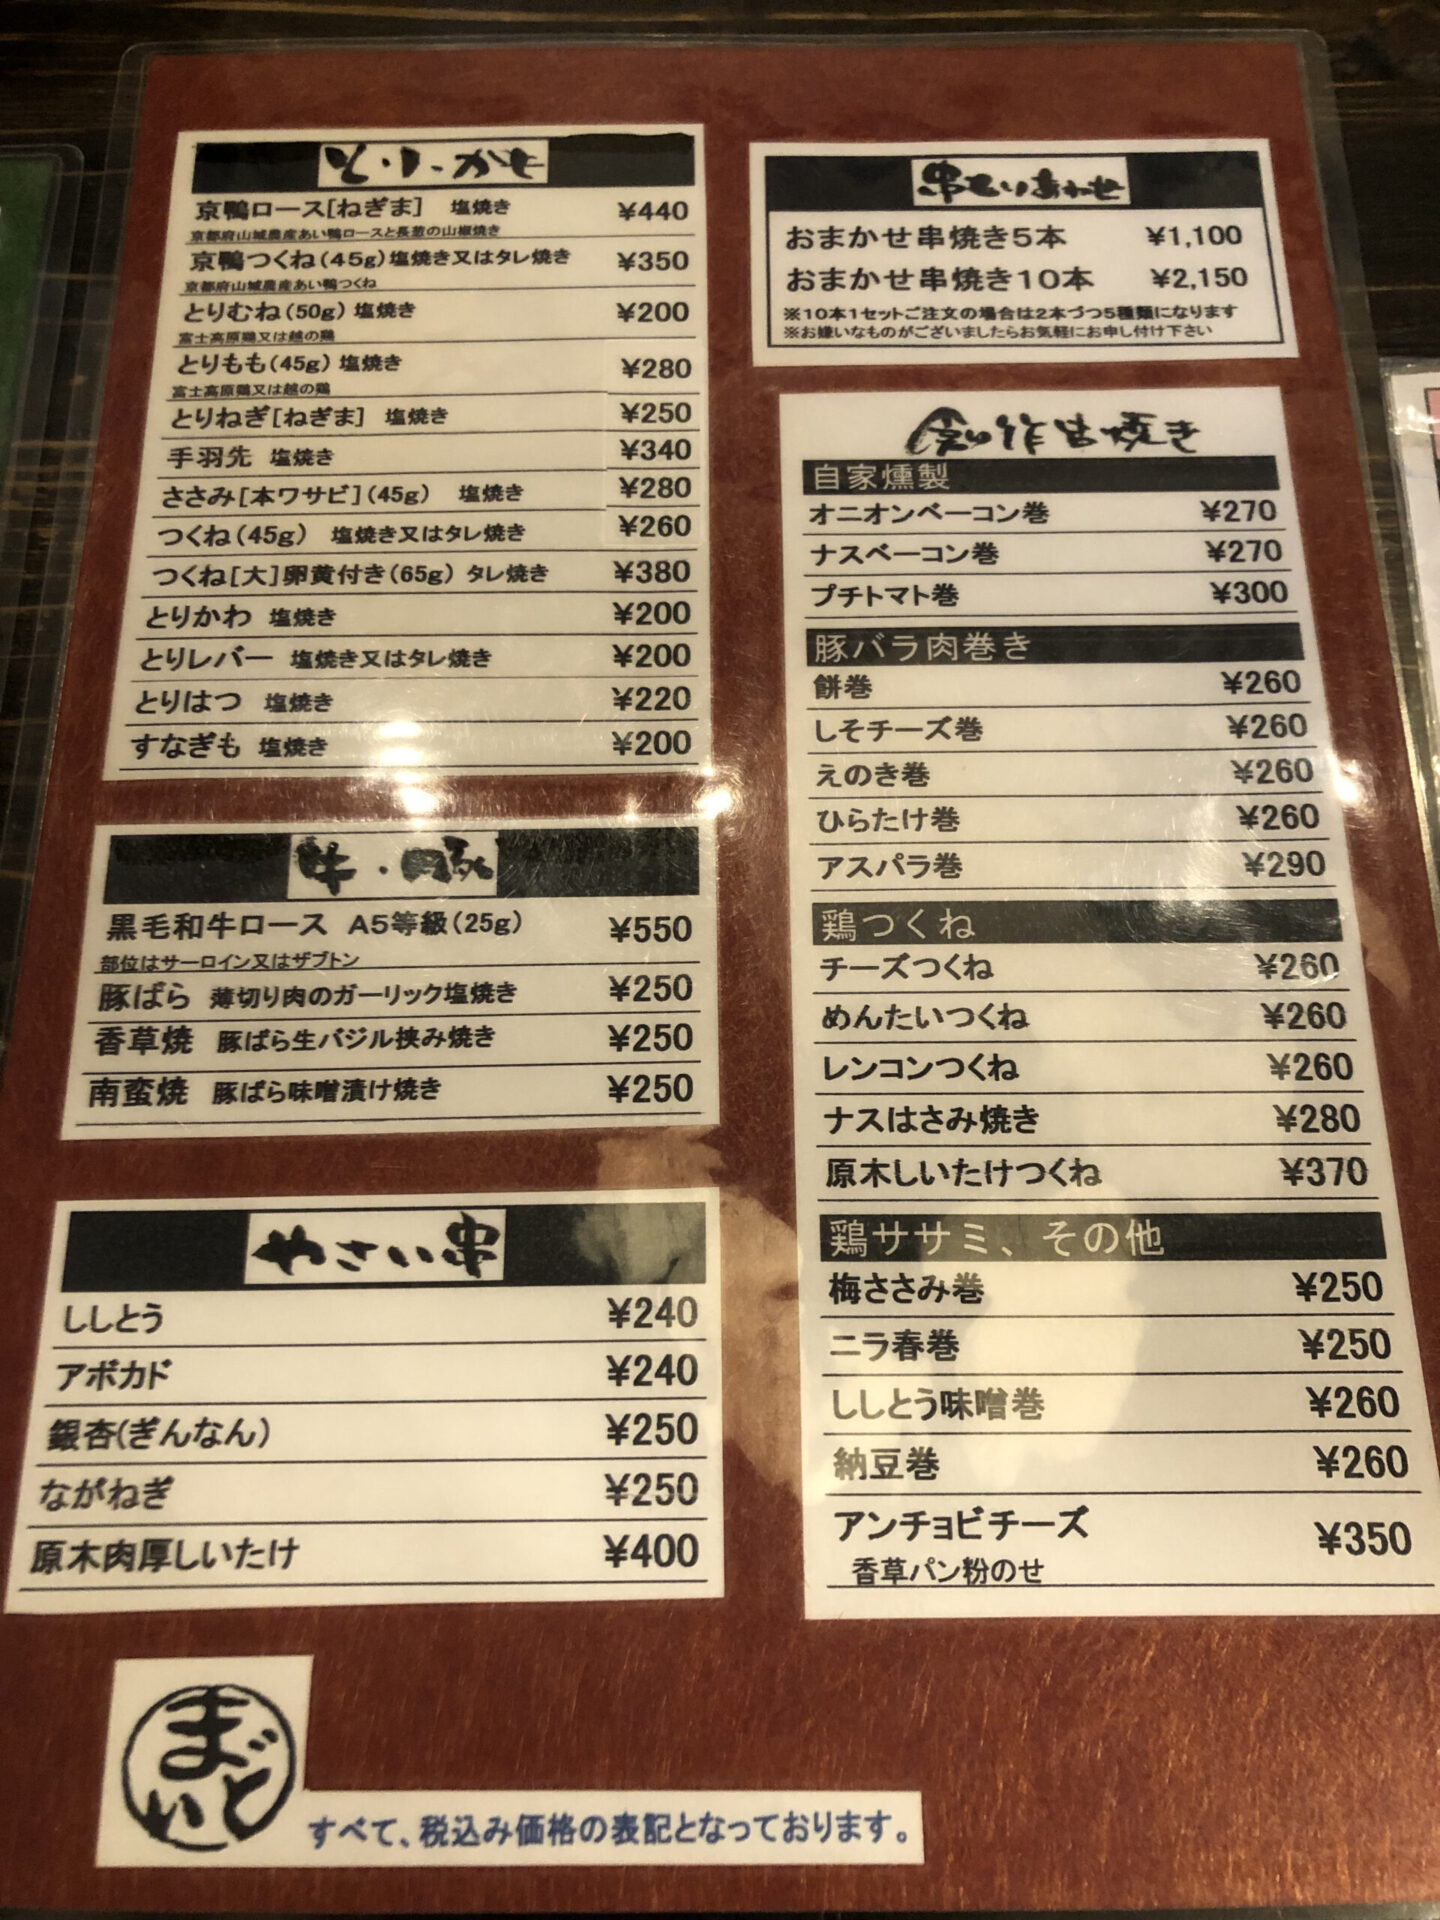 とり・かも
京鴨ロース[ねぎま] 塩焼き ¥440
京都府山城農産あい鴨ロースと長葱の山椒焼き
京鴨つくね(45g)塩焼き又はタレ焼き ¥350
京都府山城農産あい鴨つくね
とりむね(50g) 塩焼き ¥200
富士高原鶏又は越の鶏
とりもも(45g) 塩焼き ¥280
富士高原鶏又は越の鶏
とりねぎ[ねぎま] 塩焼き ¥250
手羽先 塩焼き ¥340
ささみ[本ワサビ](45g) 塩焼き ¥280
つくね(45g) 塩焼き又はタレ焼き ¥260
つくね[大]卵黄付き(65g) タレ焼き ¥380
とりかわ 塩焼き ¥200
とりレバー 塩焼き又はタレ焼き ¥200
とりはつ 塩焼き ¥220
すなぎも 塩焼き ¥200
牛・豚
黒毛和牛ロース A5等級(25g) ¥550
部位はサーロイン又はザブトン
豚ばら 薄切り肉のガーリック塩焼き ¥250
香草焼 豚ばら生バジル挟み焼き ¥250
南蛮焼 豚ばら味噌漬け焼き ¥250
やさい串
ししとう ¥240
アボカド ¥240
銀杏(ぎんなん) ¥250
ながねぎ ¥250
原木肉厚しいたけ ¥400
串もりあわせ
おまかせ串焼き5本 ¥1,100
おまかせ串焼き10本 ¥2,150
※10本1セットご注文の場合は2本づつ5種類になります
※お嫌いなものがございましたらお気軽にお申し付け下さい
創作串焼き
自家燻製
オニオンベーコン巻 ¥270
ナスベーコン巻 ¥270
プチトマト巻 ¥300
豚バラ肉巻き
餅巻 ¥260
しそチーズ巻 ¥260
えのき巻 ¥260
ひらたけ巻 ¥260
アスパラ巻 ¥290
鶏つくね
チーズつくね ¥260
めんたいつくね ¥260
レンコンつくね ¥260
ナスはさみ焼き ¥280
原木しいたけつくね ¥370
鶏ササミ、その他
梅ささみ巻 ¥250
ニラ春巻 ¥250
ししとう味噌巻 ¥260
納豆巻 ¥260
アンチョビチーズ ¥350
香草パン粉のせ
まいど
すべて、税込み価格の表記となっております。